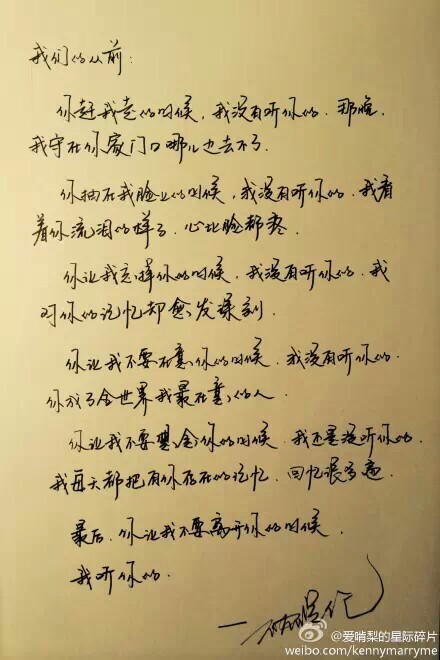 我们的从前：
你赶我走的时候，我没有听你的．那晚，
我守在你家门口哪儿也去不了．
你抽在我脸上的时候，我没有听你的．我看
着你流泪的样子．心比脸都疼．
你让我忘掉你的时候，我没有听你的．我
对你的记忆却愈发深刻．
你让我不要在意你的时候．我没有听你的．
你成了全世界我最在意的人．
你让我不要想念你的时候．我还是没听你的．
我每天都把有你存在的记忆．回忆很多遍．
最后．你让我不要离开你的时候．
我听你的．
@爱啃梨的星际碎片
weibo.com/kennymarryme